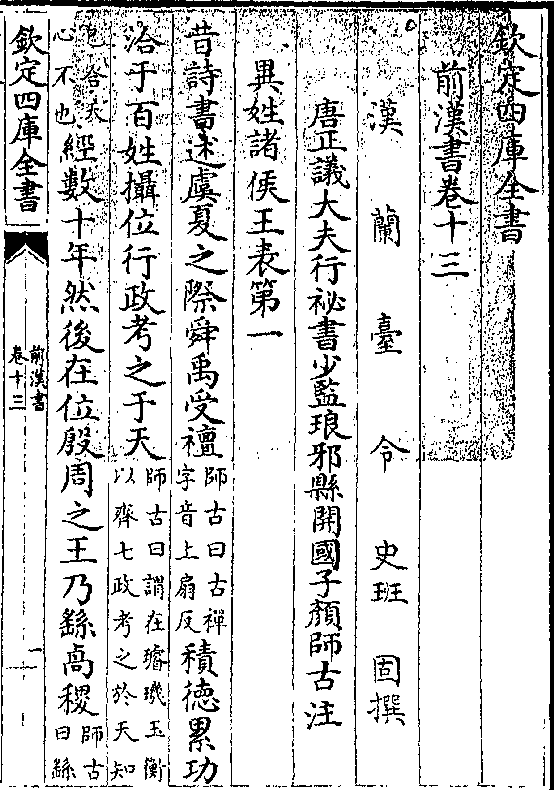 欽定四庫全書
前漢書卷十三
漢蘭臺令史班固撰
唐正議大夫行祕書少監琅邪縣開國子顏師古注
異姓諸侯王表第一
昔詩書述虞夏之際舜禹受禪師古曰古禪字音上扇反積德累功
洽于百姓攝位行政考之于天師古曰謂在璿璣玉衡以齊七政考之於天知
已合天心不也經數十年然後在位殷周之王乃繇卨稷師古曰繇
欽定四庫全書
前漢書
卷十三
一